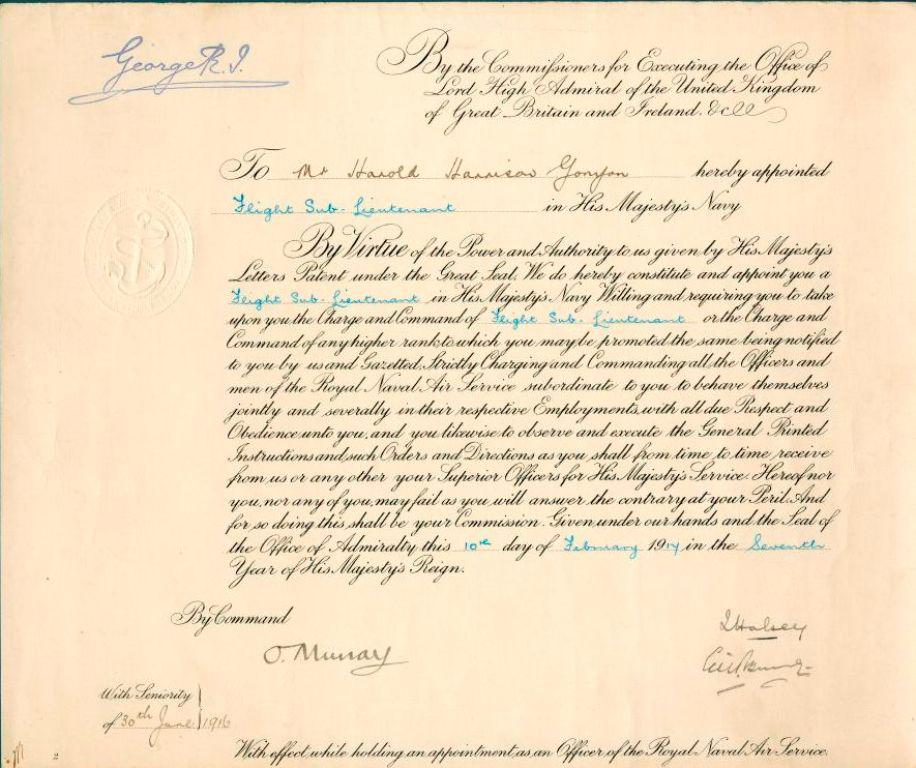 George R.I.
By the Commissioners for Executing the Office of
Lord High Admiral of the United Kingdom
of Great Britain and Ireland. &c
To Mr Harold Harrison hereby appointed
Flight Sub-Lieutenant in His Majesty's Navy
By Virtue of the Power and Authority to us given by His Majesty's
Letters Patent under the Great Seal, We do hereby constitute and appoint you a
Flight Sub-Lieutenant in His Majesty's Navy Willing and requiring you to take
upon you the Charge and Command of Flight Sub-Lieutenant or the Charge and
Command of any higher rank to which you may be promoted the same being notified
to you by us and Gazetted, Strictly Charging and Commanding all the Officers and
men of the Royal Naval Air Service subordinate to you to behave themselves
jointly and severally in their respective Employments, with all due Respect and
Obedience unto you, and you likewise to observe and execute the General Printed
Instructions and such Orders and Directions as you shall from time to time receive
from us or any other your Superior Officers for His Majesty's Service. Hereof nor
you, nor any of you may fail as you will answer the contrary at your Peril. And
for so doing this shall be your Commission. Given under our hands and the Seal of
the Office of Admiralty this 10th day of February 1917 in the Seventh
Year of His Majesty's Reign.
By Command
O. Murray
LHalsey
With Seniority
of 30th June 1916
With effect while holding an appointment as an Officer of the Royal Naval Air Service.
2